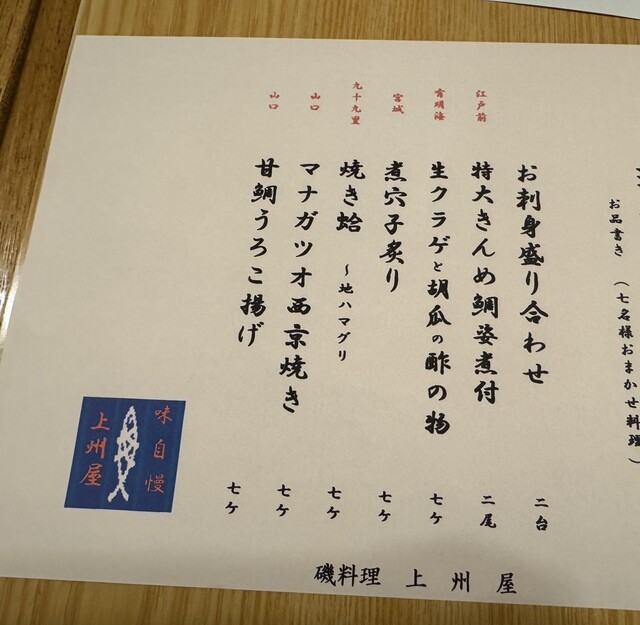 お品書き （七名様おまかせ料理）
お刺身盛り合わせ 二台
江戸前 特大きんめ鯛姿煮付 二尾
有明海 生クラゲと胡瓜の酢の物 七ケ
宮城 煮穴子炙り 七ケ
九十九里 焼き蛤 ～地ハマグリ 七ケ
山口 マナガツオ西京焼き 七ケ
山口 甘鯛うろこ揚げ 七ケ
磯料理 上州屋
味自慢
上州屋